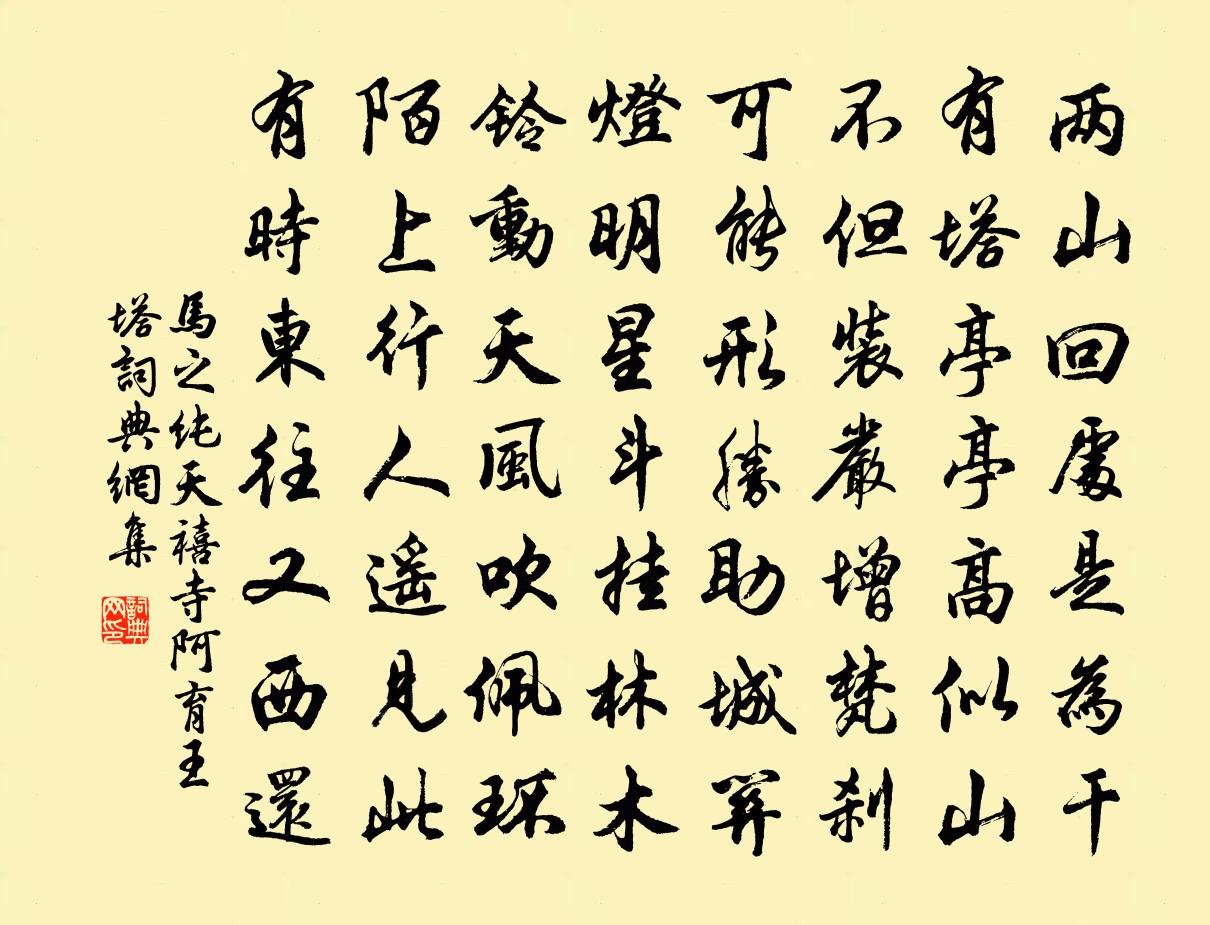 两山回處是為干
有塔亭亭高似山
不但裝嚴增梵刹
可能形勝助城關
燈明星斗挂林木
鈴動天風吹佩環
陌上行人遥見此
有時東往又西還
馬之纯天禧寺阿育王
塔詞典網集
詞典
网印